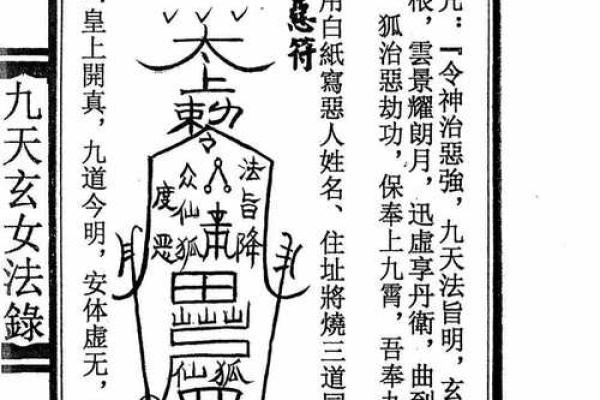 咒：『令神治惡強，九天法旨明，玄
根，雲景耀朗月，迅虛享丹衛，曲到
狐治惡劫功，保奉上九霄，吾奉九
用白紙寫惡人姓名、住址將燒三道
惡符
太上敕令
法旨降
众仙狐
度恶
田
山山山
仙狐
皇上開真，九道今明，安体虛无，
九天玄女法錄